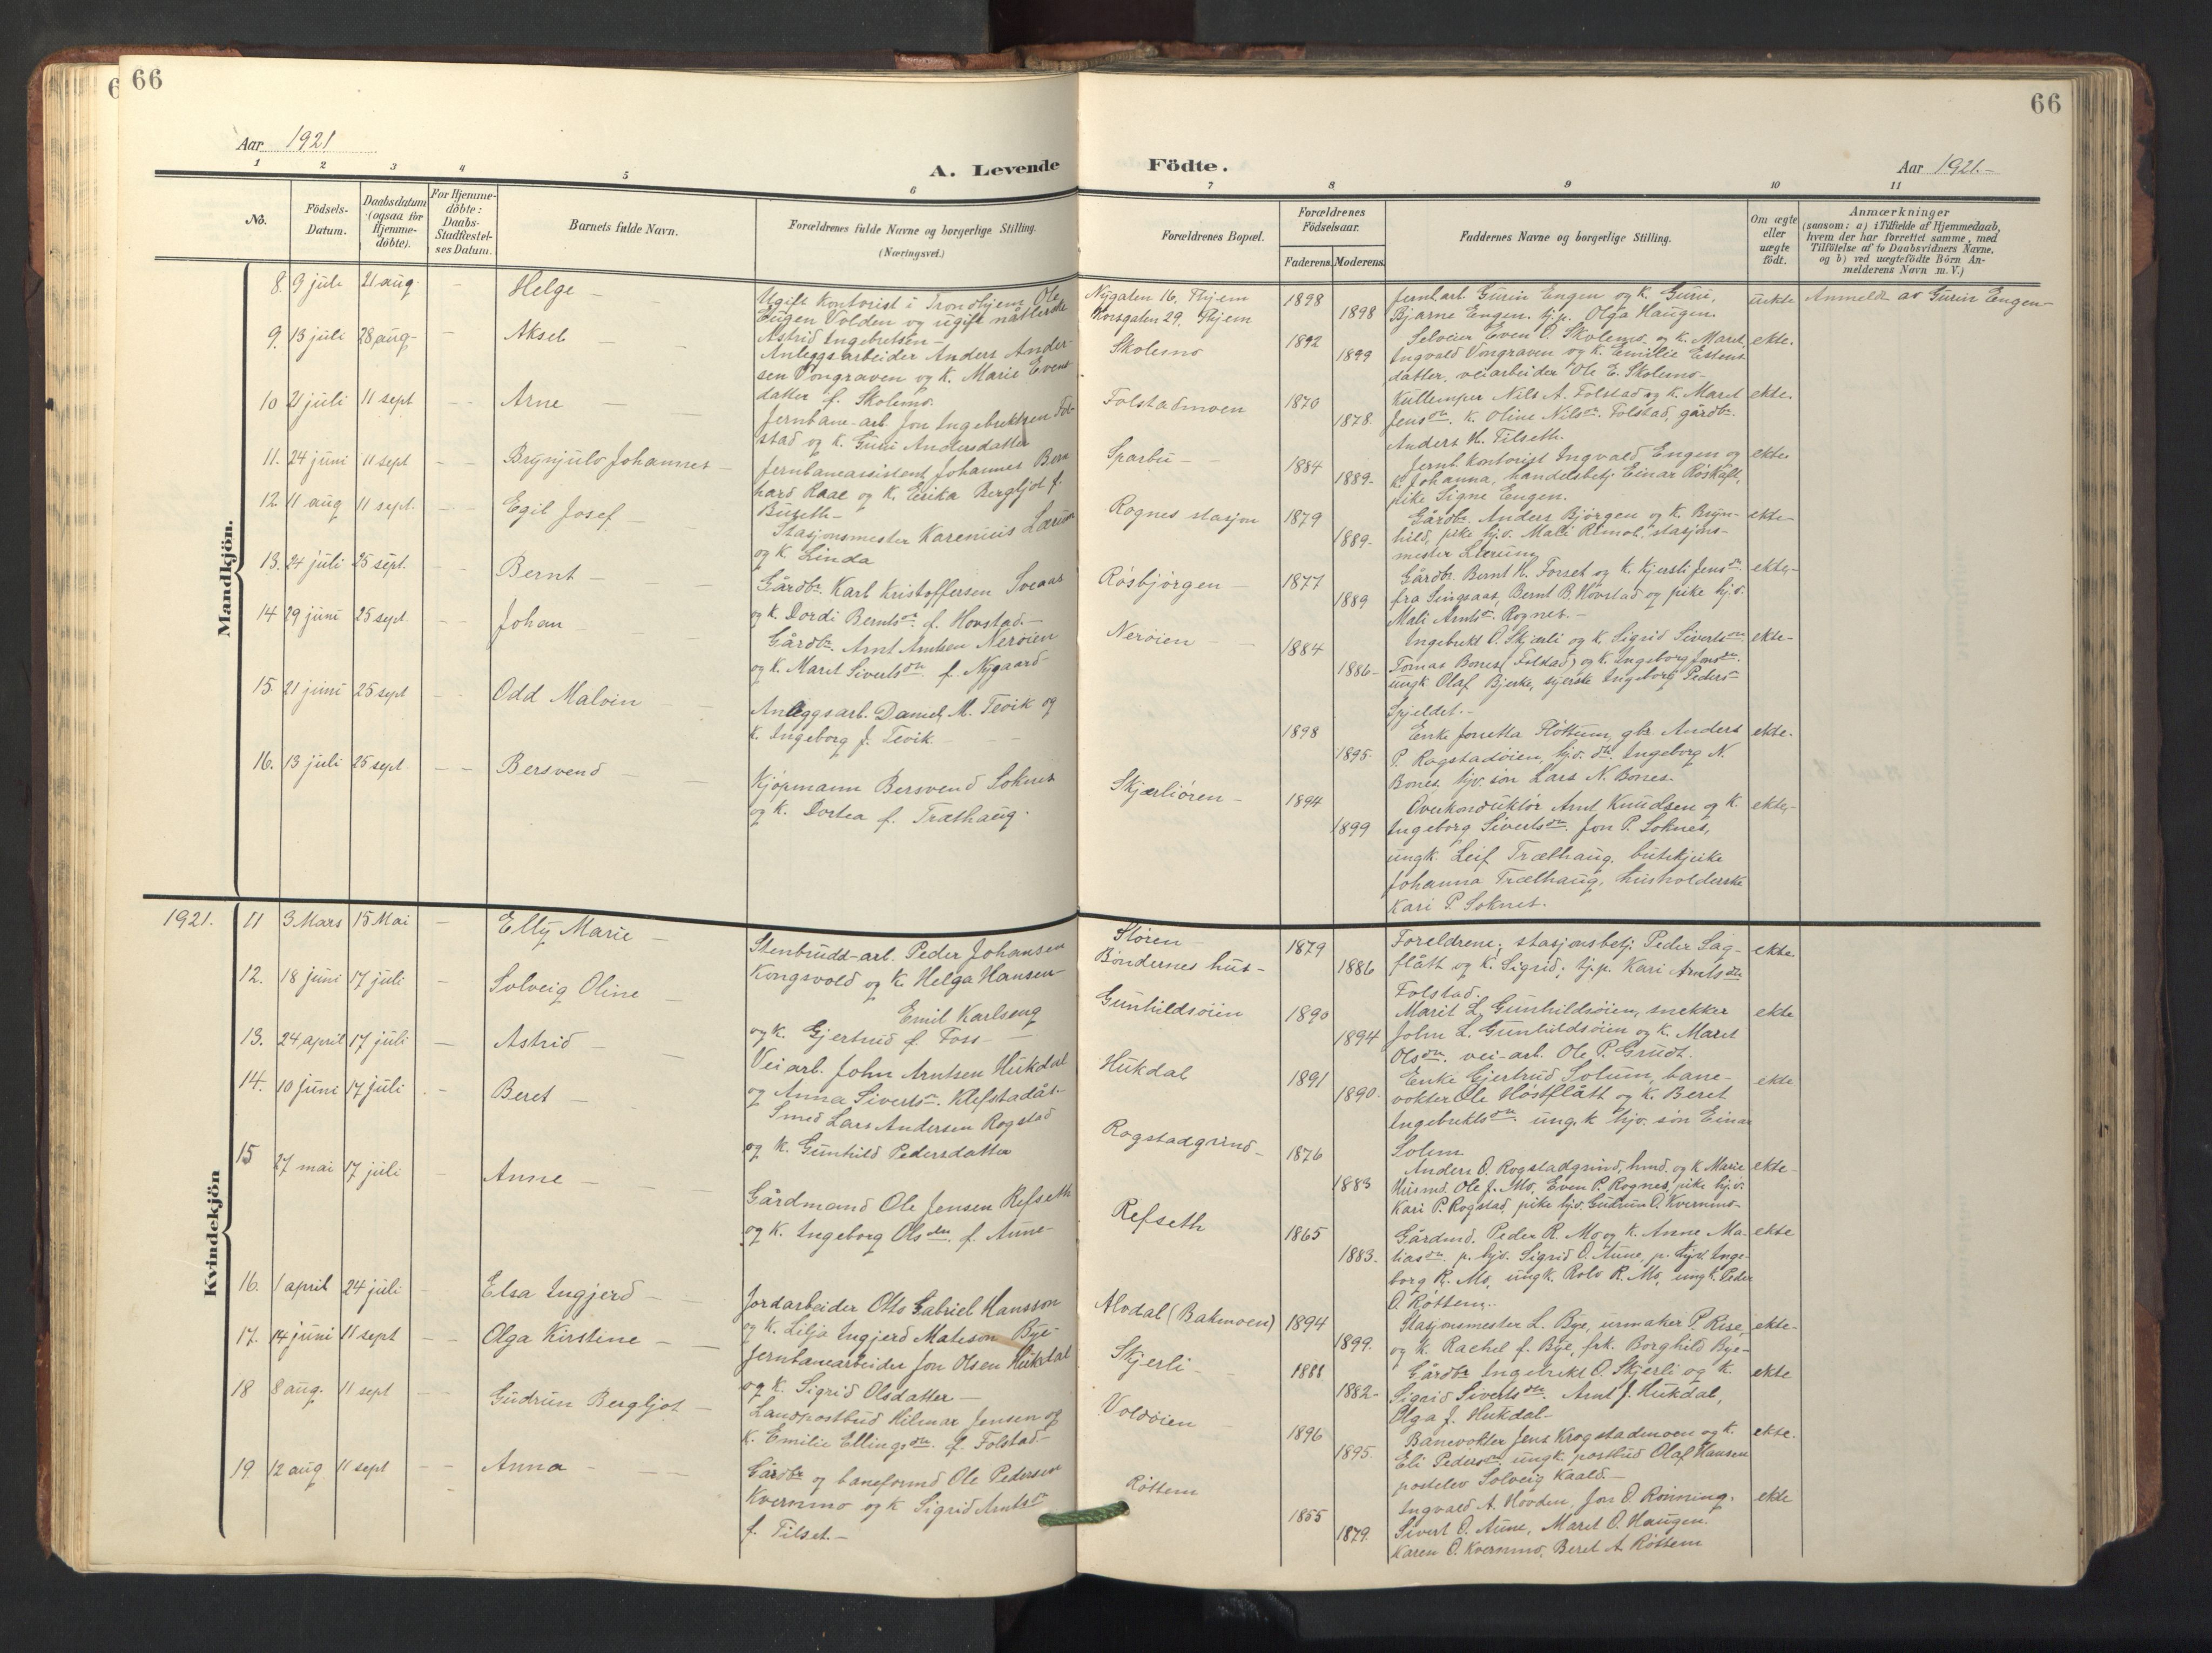 66
66
Aar 1921
A. Levende
Födte.
Aar 1921.-
1 2 3 4 5 6 7 8 9 10 11
No.
Födsels-Datum.
Daabsdatum (ogsaa for Hjemme-döbte).
For Hjemme-döbte: Daabs-Stadfæstel-ses Datum.
Barnets fulde Navn.
Forældrenes fulde Navne og borgerlige Stilling. (Næringsvei.)
Forældrenes Bopæl.
Forældrenes Födselsaar.
Faderens. Moderens.
Faddernes Navne og borgerlige Stilling.
Om ægte eller uægte födt.
Anmærkninger
(saasom: a) i Tilfælde af Hjemmedaab,
hvem der har forrettet samme, med
Tilföielse af to Daabsvidners Navne.
og b) ved uægtefödte Börn An-
melderens Navn m. V.)
Mandkjön.
8. 9 juli 21 aug. Helge -
Ugift Kontorist i Trondhjem Ole
Eugen Volden og ugift nåtlerske
Astrid Ingebretsen -
Nygaten 16, Thjem
Korsgaten 29, Thjem
1898
1898
Jernb.arb. Gurin Engen og K. Guri,
Bjarne Engen. tj.p. Olga Haugen.
uekte Anmeldt av Gurin Engen -
9. 13 juli 28 aug - Aksel
Anleggsarbeider Anders Ander-
sen Vongraven og K. Marie Evens
datter f. Skolemo.
Skolemo
1892
1899
Selveier Even O. Skolemo og K. Maret,
Ingvald Vongraven og K. Emilie Estens
datter, veiarbeider Ole E. Skolemo -
ekte.
10 21 juli 11 sept Arne
Jernbane-arb. Jon Ingebrektsen Fol-
stad og K. Guri Andersdatter
Folstadmoen
1870
1878.
Nils A. Folstad og K. Maret
Jensdtr. K. Oline Nilsdtr. Folstad, gårdbr.
Anders H. Tilseth.
ekte.
11. 24 juni 11 sept Brynjulv Johannes -
Jernbaneassistent Johannes Bern
hard Raae og K. Erika Bergljot f.
Buseth -
Sparbu -
1884
1889 -
Jernb. Kontorist Ingvald Engen og
K. Johanna, handelsbetj. Einar Röskaft,
pike Signe Engen.
ekte
12. 11 aug 11 sept. Egil Josef -
Stasjonsmester Karenius Lærum
og K. Linda
Rognes stasjon
1879
1889 -
Gårdbr. Anders Bjørgen og K. Bryn-
hild, pike hj.v. Mali Rimol, stasjons-
mester Lærum
ekte -
13. 24 juli 25 sept. Bernt -
Gårdbr. Karl Kristoffersen Sveaas
og K. Dordi Berntsdr. f. Hovstad. -
Røsbjørgen
1877
1889
Gårdbr. Bernt H. Forset og K. Kjersti Jensdtr.
fra Singsaas, Bernt B. Hovstad og pike hj.v.
Mali Arntsdr. Rognes. -
ekte, -
14 29 juni 25 sept. Johan
Gårdbr. Arnt Arntsen Nerøien
og K. Maret Sivertsdtr. f. Nygaard -
Nerøien
1884
1886 -
Ingebrikt O. Skjerli og K. Sigrid Sivertsdtr.
Tomas Bones (Folstad) og K. Ingeborg Jonsdtr.
ungk Olaf Bjerke, syerske Ingeborg Pedersdr
Spjeldet. -
ekte -
15. 21 juni 25 sept Odd Malvin
Anleggsarb. Daniel M. Tevik og
K. Ingeborg f. Tevik
1898
1895
Enke Jonetta Fløttum, gbr. Anders
P. Rogstadøien, hj.v. dtr. Ingeborg N.
Bones, hjv. søn Lars N. Bones.
ekte.
16. 13 juli 25 sept Bersvend
Kjøpmann Bersvend Soknes
og K. Dortea f. Træthaug.
Skjærliøren -
1894
1899
Overkonduktør Arnt Knudsen og K.
Ingeborg Sivertsdtr. Jon P. Soknes,
ungk. Leif Træthaug, butikpike
Johanna Træthaug, husholderske
Kari P. Soknes.
ekte, -
Kvindekjön
1921. 11 3 Mars 15 Mai Elly Marie -
Stenbrudd-arb. Peder Johansen
Kongsvold og K. Helga Hansen -
Støren
Bøndernes hus -
1879
1886
Foreldrene, stasjonsbetj. Peder Sag-
flått og K. Sigrid; tj.p. Kari Arntsdtr
Folstad.
ekte
12. 18 juni 17 juli Solveig Oline
Emil Karlseng
og K. Gjertrud f. Foss -
Gunhildsøien
1890
1894
Marit L. Gunhildsøien, snekker
John L. Gunhildsøien og K. Maret
Olsdtr. vei-arb. Ole P. Grudt.
ekte
13. 24 april 17 juli Astrid
Veiarb. John Arntsen Hukdal
og Anna Sivertsdr. Klefstadås -
Hukdal
1891
1890.
Enke Gjertrud Solum, bane-
vokter Ole Høstflått og K. Beret
Ingebrektsdtr. ungk hjv. søn Einar
Solem
ekte
14. 10 juni 17 juli Beret -
Smed Lars Andersen Rogstad
og K. Gunhild Pedersdatter
Rogstadgrind -
1876
1883
Anders O. Rogstadgrind, husmd. og K Marie
Husmd. Ole J. Mo, Even P. Rognes, pike hj.v.
Kari P. Rogstad, pike hjv. Gudrun O. Kvernmo -
ekte -
15 27 mai 17 juli Anne -
Gårdmand Ole Jensen Refseth
og K. Ingeborg Olsdtr. f. Aune -
Refseth
1865
1883.
Gårdmd. Peder R. Mo og K. Anne Ma-
tiasdtr, p. hjv. Sigrid O. Aune, p. hjv. Inge-
borg R. Mo, ungk. Rolv R. Mo, ungk. Peder
O. Røttem. -
ekte
16. 1 april 24 juli Elsa Ingjerd -
Jordarbeider Otto Gabriel Hansson
og K. Lilja Ingjerd Mateson Bye -
Alvdal (Bakmoen)
1894
1899.
Stasjonsmester L. Bye, urmaker P. Rise,
og K. Rachel f. Bye, frk. Borghild Bye -
ekte -
17. 14 juni 11 sept Olga Kirstine -
Jernbanearbeider Jon Olsen Hukdal
og K. Sigrid Olsdatter -
Skjerli -
1881
1882 -
Gårdbr Ingebrikt O. Skjerli og K.
Sigrid Sivertsdtr. Arnt J. Hukdal,
Olga J. Hukdal -
ekte
18 8 aug. 11 sept Gudrun Bergljot -
Landpostbud Hilmar Jensen og
K. Emilie Ellingsdtr. f. Folstad. -
Voldøien
1896
1895.
Banevokter Jens Krogstadmoen og K.
Eli Pedersdtr, ungk. postbud Olaf Hansen
postelev Solveig Kaald -
ekte.
19 12 aug 11 sept Anna -
Gårdbr og baneformd Ole Pedersen
Kvernmo og K Sigrid Arntsdr
f. Tilset. -
Røttem
1855
1879.
Ingvald A. Hovden, Jon O. Rønning,
Sivert O. Aune, Maret O. Haugen.
Karen O. Kvernmo, Beret A Røttem
ekte